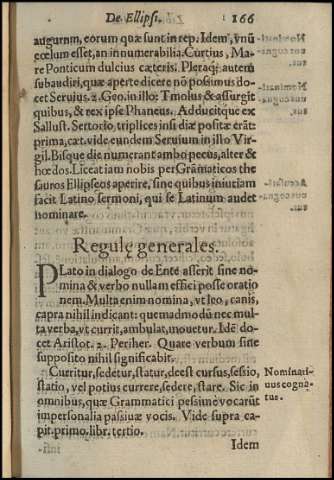 De Ellipsi. 166
augurum, eorum quæ sunt in rep. Idem, vnũ
cœlum esset, an innumerabilia. Curtius, Ma-
re Ponticum dulcius cæteris. Pleraq; autem
subaudiri, quæ aperte dicere nõ possimus do-
cet Seruius. 2. Geo. in illo: Tmolus & assurgit
quibus, & rex ipse Phaneus. Adducitque ex
Sallust. Sertorio, triplices insi diæ positæ erãt:
prima, cæt. vide eundem Seruium in illo Vir-
gil. Bisque die numerant ambo pecus, alter &
hœdos. Liceat iam nobis per Grãmaticos the
sauros Ellipseos aperire, sine quibus iniuriam
facit Latino sermoni, qui se Latinum audet
nominare.
Regulę generales.
PLato in dialogo de Ente asserit sine no-
mina & verbo nullam effici posse oratio
nem. Multa enim nomina, vt leo, canis,
capra nihil indicant: quemadmodũ nec mul
ta verba, vt currit, ambulat, mouetur. Idẽ do-
cet Aristot. 2. Periher. Quare verbum sine
supposito nihil significabit.
Curritur, sedetur, statur, deest cursus, sessio,
statio, vel potius currere, sedere, stare. Sic in
omnibus, quæ Grammatici pessime vocarũt
impersonalia passiuæ vocis. Vide supra ca-
pit. primo. libr. tertio.
Nominati-
uus cogna-
tus.
Idem